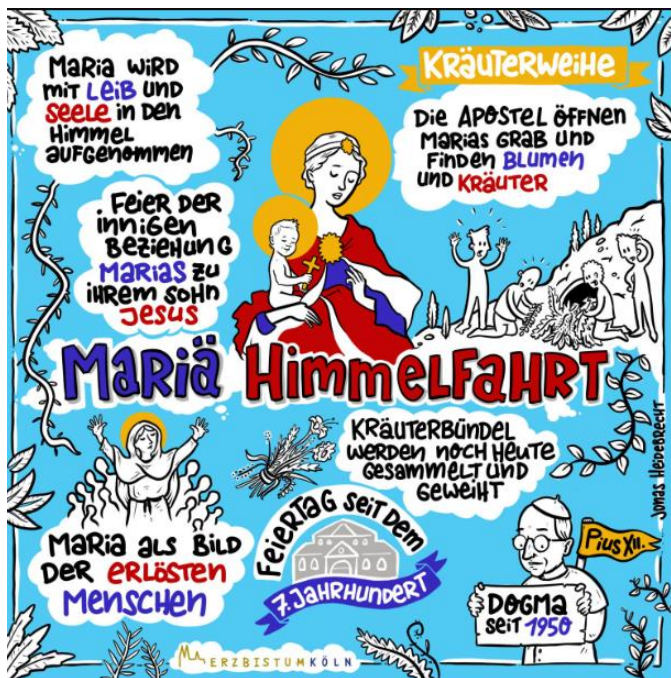 Maria wird
mit Leib und
Seele in den
Himmel
aufgenommen
Kräuterweihe
Die Apostel öffnen
Marias Grab und
finden Blumen
und Kräuter
Feier der
innigen
Beziehung
Marias zu
ihrem Sohn
Jesus
Mariä Himmelfahrt
Kräuterbündel
werden noch heute
gesammelt und
geweiht
Jonas Heidebrecht
Maria als Bild
der erlösten
Menschen
Feiertag seit dem
7. Jahrhundert
Pius XII.
Dogma
seit 1950
ERZBISTUMKÖLN